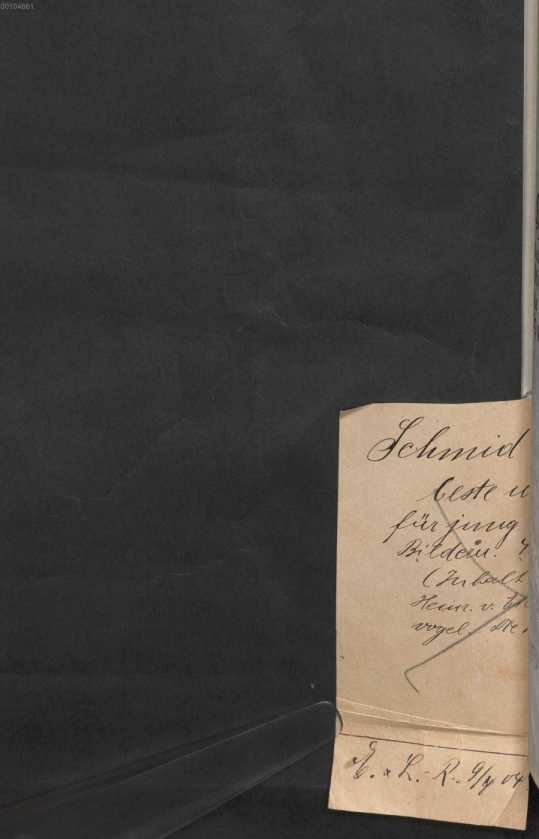 00104661
Schmid
beste u
für jung
Bildern.
(Inhalt
Heinr. v.
vogel. Die
E. & L.- R. 9/ 04.